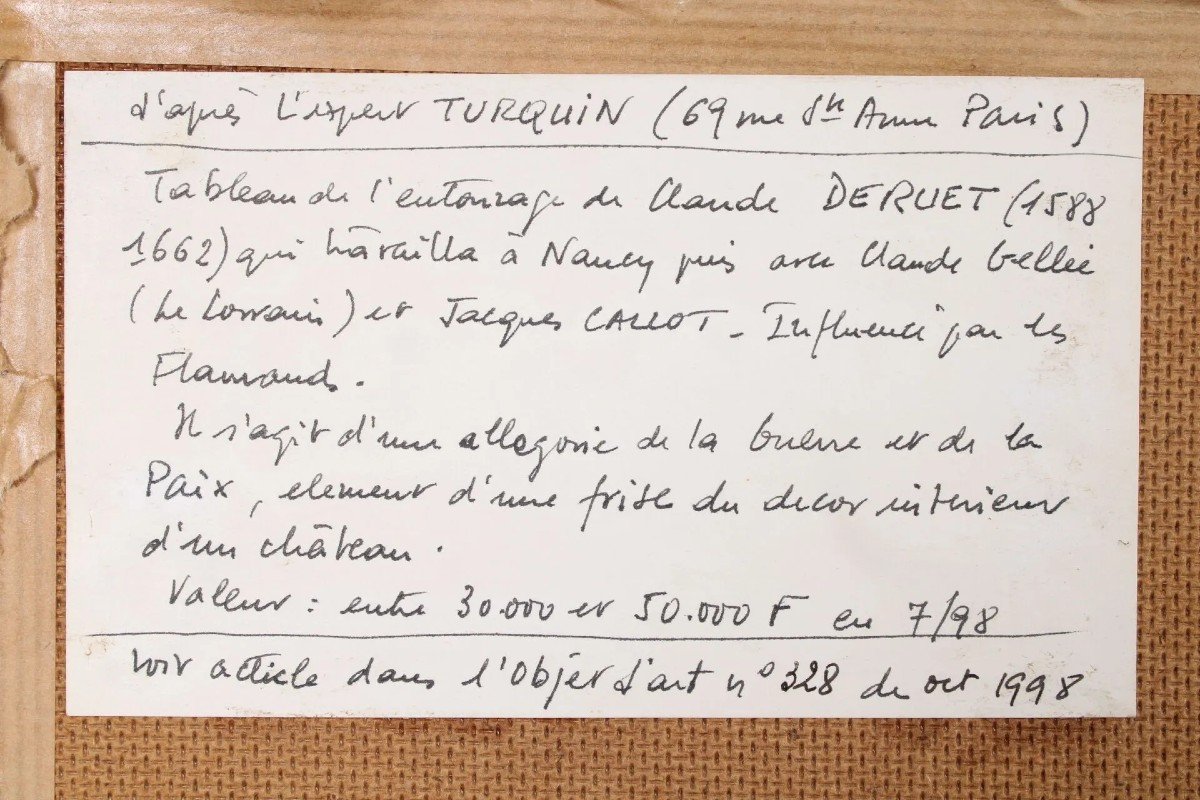 d'après L'expert TURQUIN (69 rue Ste Anne Paris)
Tableau de l'entourage de Claude DERUET (1588
1662) qui travailla à Nancy puis avec Claude Gellée
(Le Lorrain) et Jacques CALLOT - Influencé par les
Flamands.
Il s'agit d'une allegorie de la Guerre et de la
Paix, element d'une frise du decor interieur
d'un château.
Valeur : entre 30.000 et 50.000 F en 7/98
Voir article dans l'Objet d'art n° 328 de oct 1998